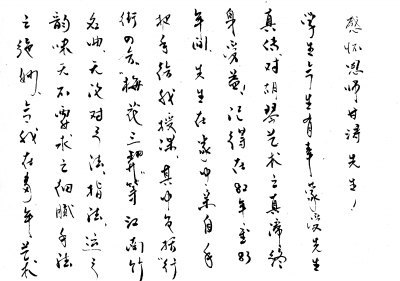 感怀恩师甘涛先生!
学生今生有幸,蒙受先生
真传,对胡琴艺术之真谛终
身受益,记得在82年至85
年间,先生在家中亲自手
把手给我授课,其中包括“行
街四合”“梅花三弄”等江南竹
名曲,无论对弓法,指法,运弓
韵味无不要求之细腻,手法
之绝妙,令我在青年艺术